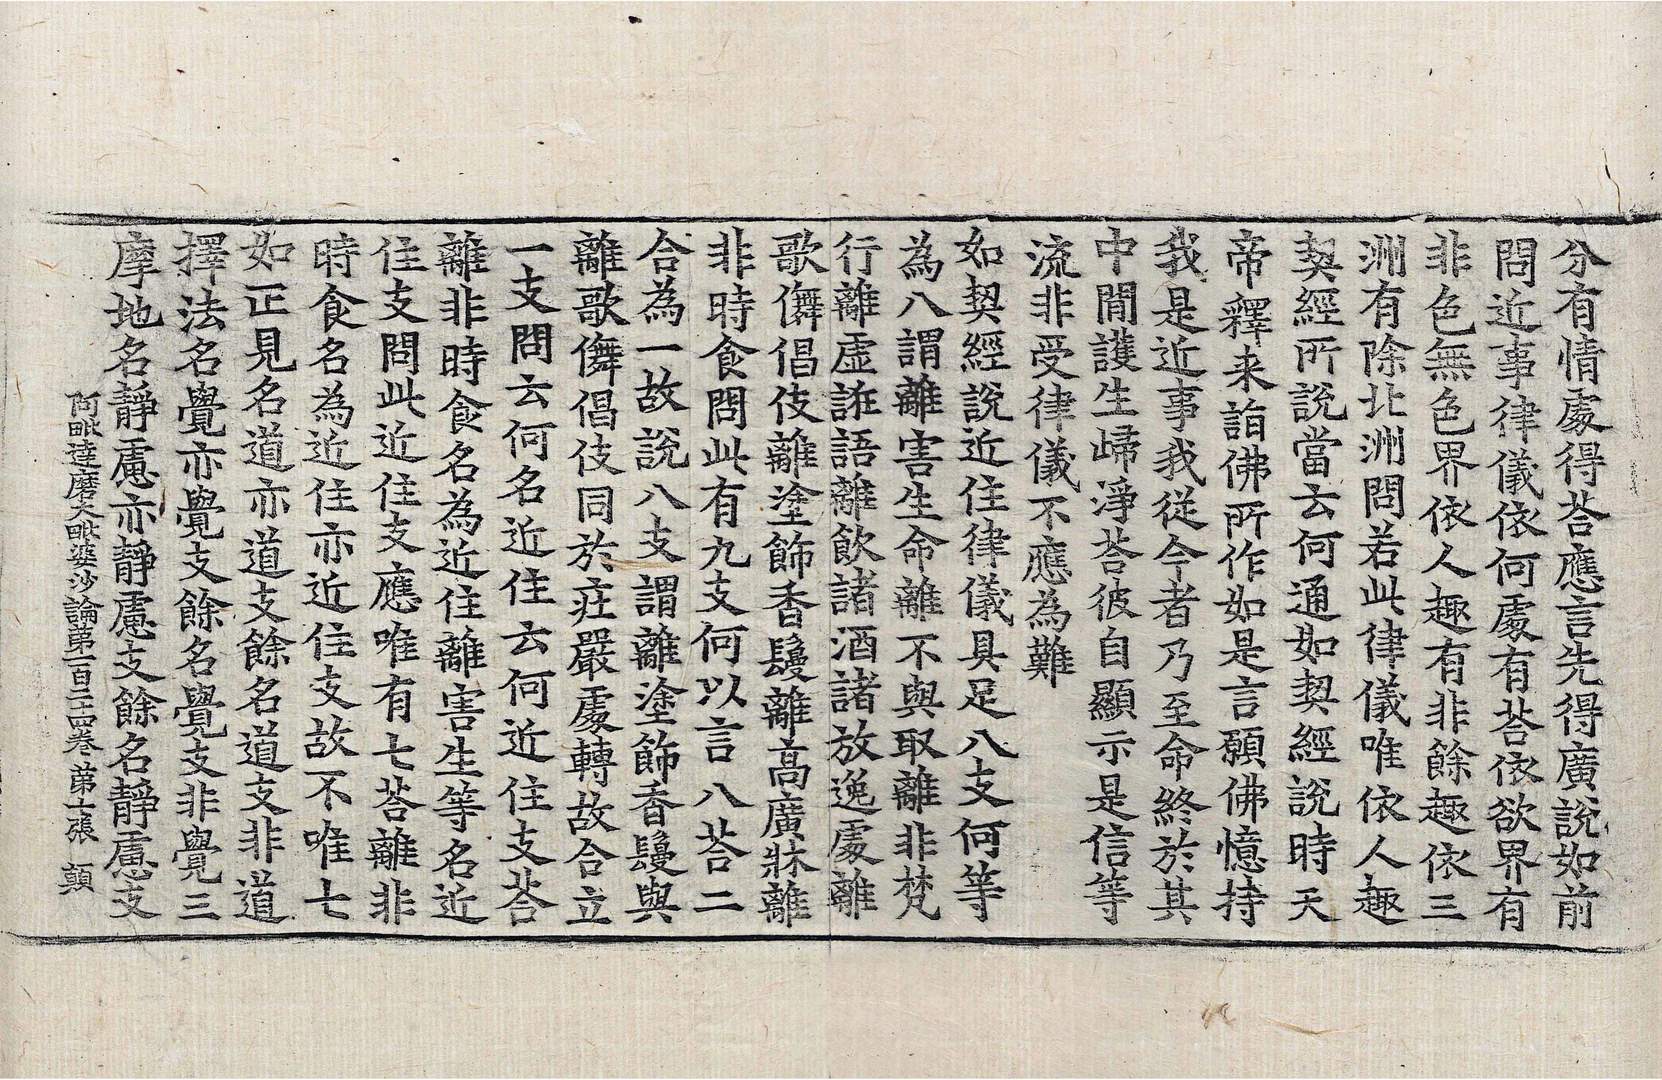 分有情處得荅應言先得廣說如前
問近事律儀依何處有荅依欲界有
非色無色界依人趣有非餘趣依三
洲有除北洲問若此律儀唯依人趣
契經所說當云何通如契經說時天
帝釋来詣佛所作如是言願佛憶持
我是近事我從今者乃至命終於其
中閒護生歸淨荅彼自顯示是信等
流非受律儀不應為難
如契經說近住律儀具足八支何等
為八謂離害生命離不與取離非梵
行離虛誑語離飲諸酒諸放逸處離
歌儛倡伎離塗飾香鬘離高廣牀離
非時食問此有九支何以言八荅二
合為一故說八支謂離塗飾香鬘與
離歌儛倡伎同於莊嚴處轉故合立
一支問云何名近住云何近住支荅
離非時食名為近住離害生等名近
住支問此近住支應唯有七荅離非
時食名為近住亦近住支故不唯七
如正見名道亦道支餘名道支非道
擇法名覺亦覺支餘名覺支非覺三
摩地名靜慮亦靜慮支餘名靜慮支
阿毗達磨大毗婆沙論第一百二十四卷 苐十張 顗